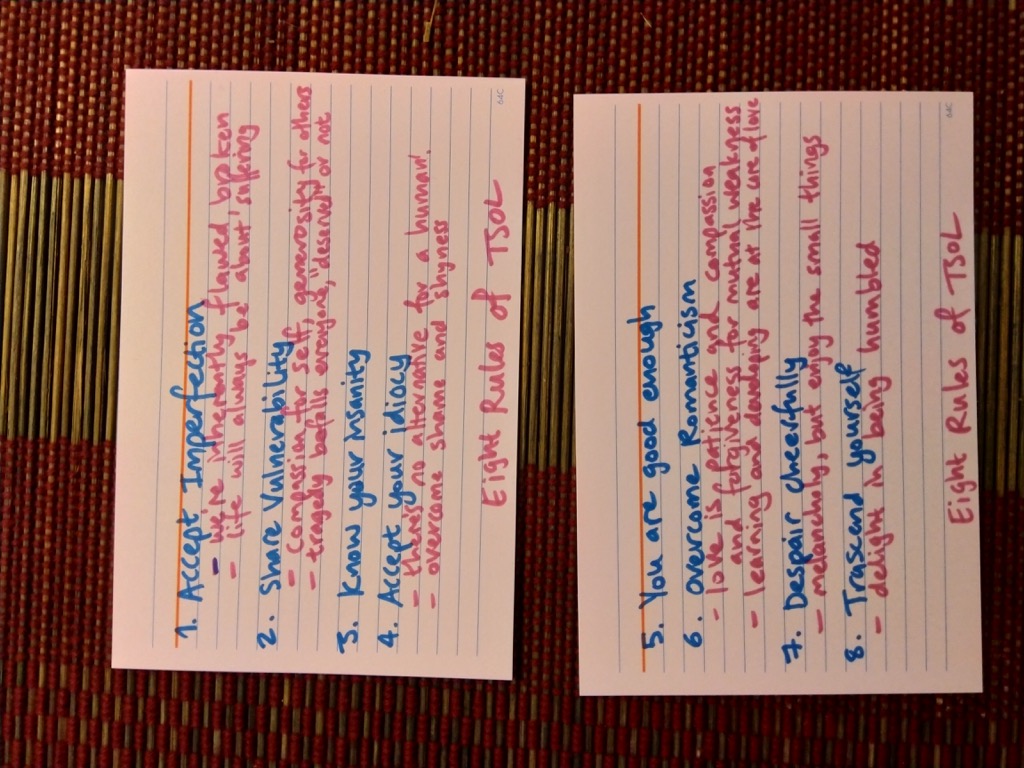 1. Accept Imperfection
- we're inherently flawed, broken
- life will always be about suffering
2. Share Vulnerability
- compassion for self, generosity for others
- tragedy befalls everyone, "deserved" or not
3. Know your insanity
4. Accept your idiocy
- there's no alternative for a human.
- overcome shame and shyness
Eight Rules of TSOL
5. You are good enough
6. overcome Romanticism
- love is patience and compassion
and forgiveness for mutual weakness
- learning and developing are at the core of love
7. Despair cheerfully
- melancholy, but enjoy the small things
8. Trascend yourself
- delight in being humbled
Eight Rules of TSOL